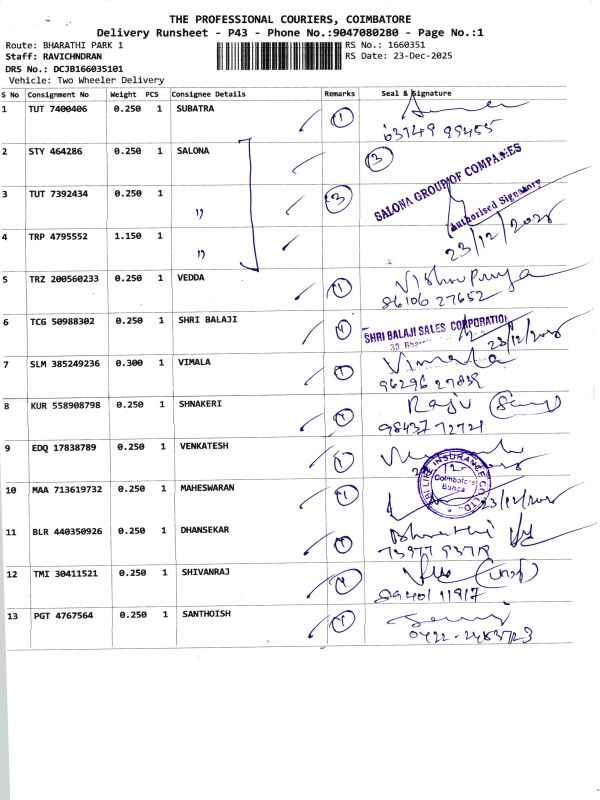 THE PROFESSIONAL COURIERS, COIMBATORE
Delivery Runsheet - P43 - Phone No.:9047080280 - Page No.:1
Route: BHARATHI PARK 1 RS No.: 1660351
Staff: RAVICHNDRAN RS Date: 23-Dec-2025
DRS No.: DCJB166035101
Vehicle: Two Wheeler Delivery
S No Consignment No Weight PCS Consignee Details Remarks Seal & Signature
1 TUT 7400406 0.250 1 SUBATRA 1
63749 99455
2 STY 464286 0.250 1 SALONA 3
SALONA GROUP OF COMPANIES
3 TUT 7392434 0.250 1 " 3
Authorised Signatory
4 TRP 4795552 1.150 1 "
23/12/2025
5 TRZ 200560233 0.250 1 VEDDA 1 Vishnu Priya
86106 27652
6 TCG 50988302 0.250 1 SHRI BALAJI 1
SHRI BALAJI SALES CORPORATION
23/12/2025
7 SLM 385249236 0.300 1 VIMALA 1 Vimala
96296 27839
8 KUR 558908798 0.250 1 SHNAKERI 1 Raju
98437 72721
9 EDQ 17838789 0.250 1 VENKATESH 1
INSURANCE CO. LTD.
Coimbatore
10 MAA 713619732 0.250 1 MAHESWARAN 1 23/12/2025
11 BLR 440350926 0.250 1 DHANSEKAR 1 Bharathi
12 TMI 30411521 0.250 1 SHIVANRAJ 1
89401 11917
13 PGT 4767564 0.250 1 SANTHOISH 1